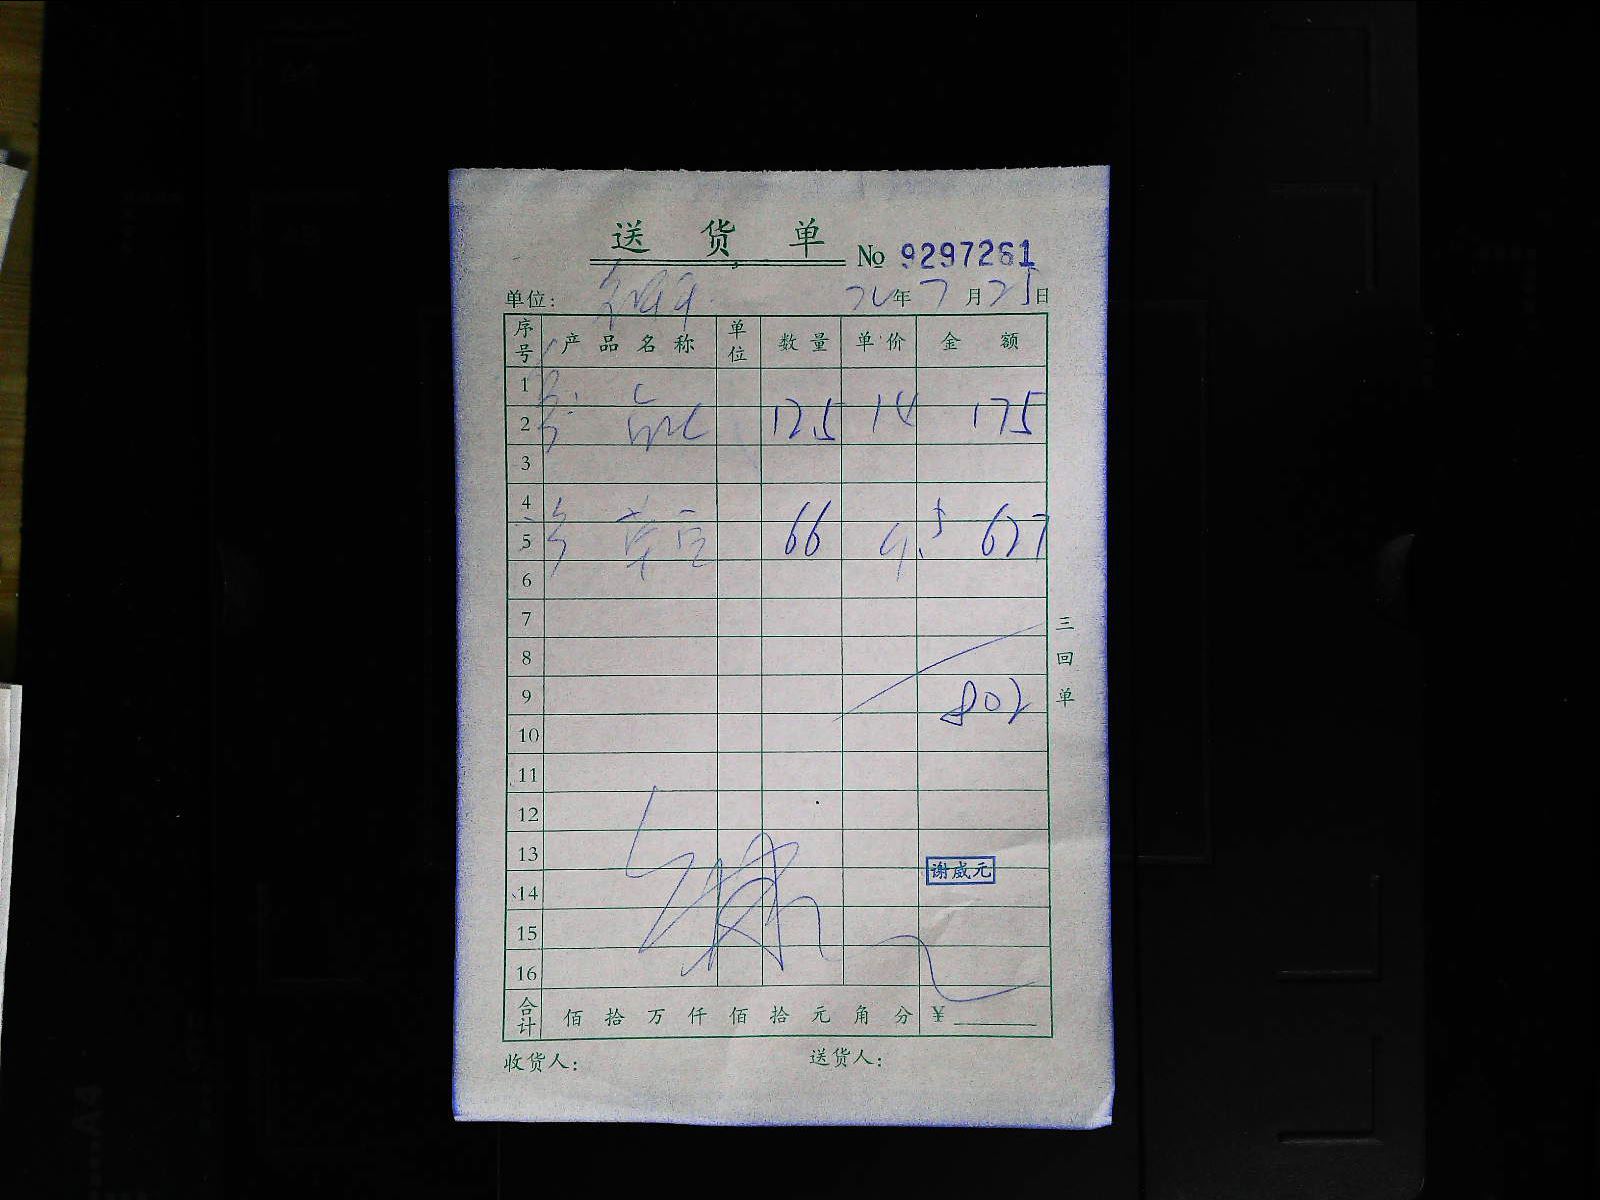 送货单 No 9297261
单位: 年 7 月 25 日
序号 产品名称 单位 数量 单价 金额
1
2 12.5 14 175
3
4
5 66 9.5 627
6
7
8
9 802
10
11
12
13
14
15
16
谢威元
合计 佰 拾 万 仟 佰 拾 元 角 分 ¥
收货人: 送货人:
三回单